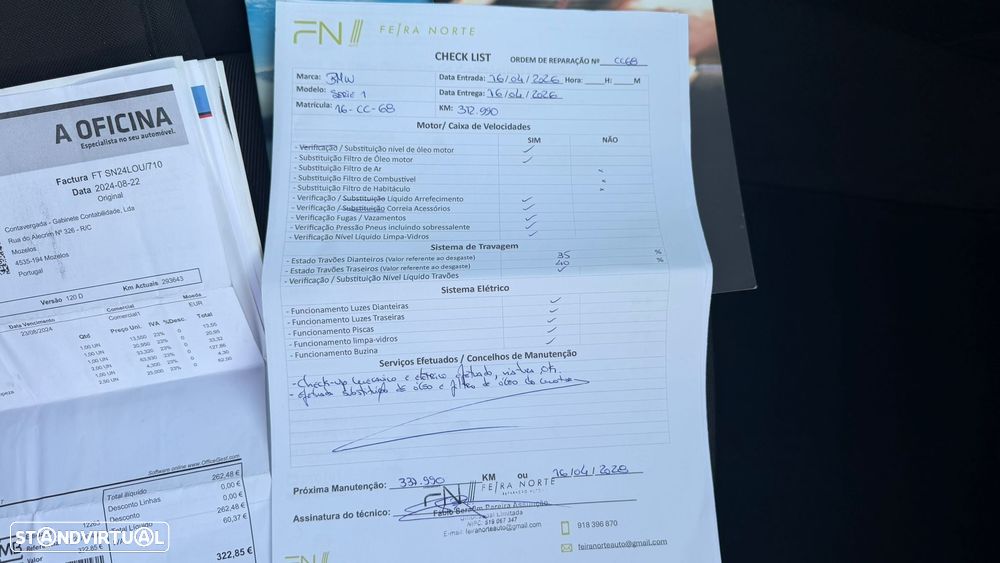 FN FEIRA NORTE
CHECK LIST ORDEM DE REPARAÇÃO Nº CC68
Marca: BMW Data Entrada: 16/04/2026 Hora: H: M
Modelo: SERIE 1 Data Entrega: 16/04/2026
Matrícula: 16-CC-68 KM: 312.990
Motor/ Caixa de Velocidades
SIM NÃO
- Verificação / Substituição nível de óleo motor
- Substituição Filtro de Óleo motor
- Substituição Filtro de Ar
- Substituição Filtro de Combustível
- Substituição Filtro de Habitáculo
- Verificação / Substituição Líquido Arrefecimento
- Verificação / Substituição Correia Acessórios
- Verificação Fugas / Vazamentos
- Verificação Pressão Pneus incluindo sobressalente
- Verificação Nível Líquido Limpa-Vidros
Sistema de Travagem
- Estado Travões Dianteiros (Valor referente ao desgaste) 35 %
- Estado Travões Traseiros (Valor referente ao desgaste) 40 %
- Verificação / Substituição Nível Líquido Travões
Sistema Elétrico
- Funcionamento Luzes Dianteiras
- Funcionamento Luzes Traseiras
- Funcionamento Piscas
- Funcionamento limpa-vidros
- Funcionamento Buzina
Serviços Efetuados / Concelhos de Manutenção
- Check-up mecânico e eletrico efetuado,
- efetuada substituição de óleo e filtro de óleo do motor
Próxima Manutenção: 337.990 KM ou 16/04/2028
FN FEIRA NORTE
Assinatura do técnico: Fabio Serafim Pereira Assunção,
Unipessoal Limitada
NIPC: 519 067 347
E-mail: feiranorteauto@gmail.com
918 396 870
feiranorteauto@gmail.com
FN
A OFICINA
Especialista no seu automóvel.
Factura FT SN24LOU/710
Data 2024-08-22
Original
Contavergada - Gabinete Contabilidade, Lda
Rua do Alecrim Nº 326 - R/C
Mozelos
4535-194 Mozelos
Portugal
Versão 120 D Km Actuais 293643
Data Vencimento Comercial Moeda
23/08/2024 Comercial1 EUR
Qtd Preço Uni. IVA %Desc. Total
1,00 UN 13,550 23% 0 13,55
1,00 UN 20,950 23% 0 20,95
1,00 UN 33,320 23% 0 33,32
2,00 UN 63,930 23% 0 127,86
1,00 UN 4,300 23% 0 4,30
2,50 UN 25,000 23% 0 62,50
Software online www.OfficeGest.com
Total Ilíquido 262,48 €
Desconto Linhas 0,00 €
Desconto 0,00 €
Total Líquido 262,48 €
IVA 60,37 €
322,85 €
Valor 322,85 €
STANDVIRTUAL